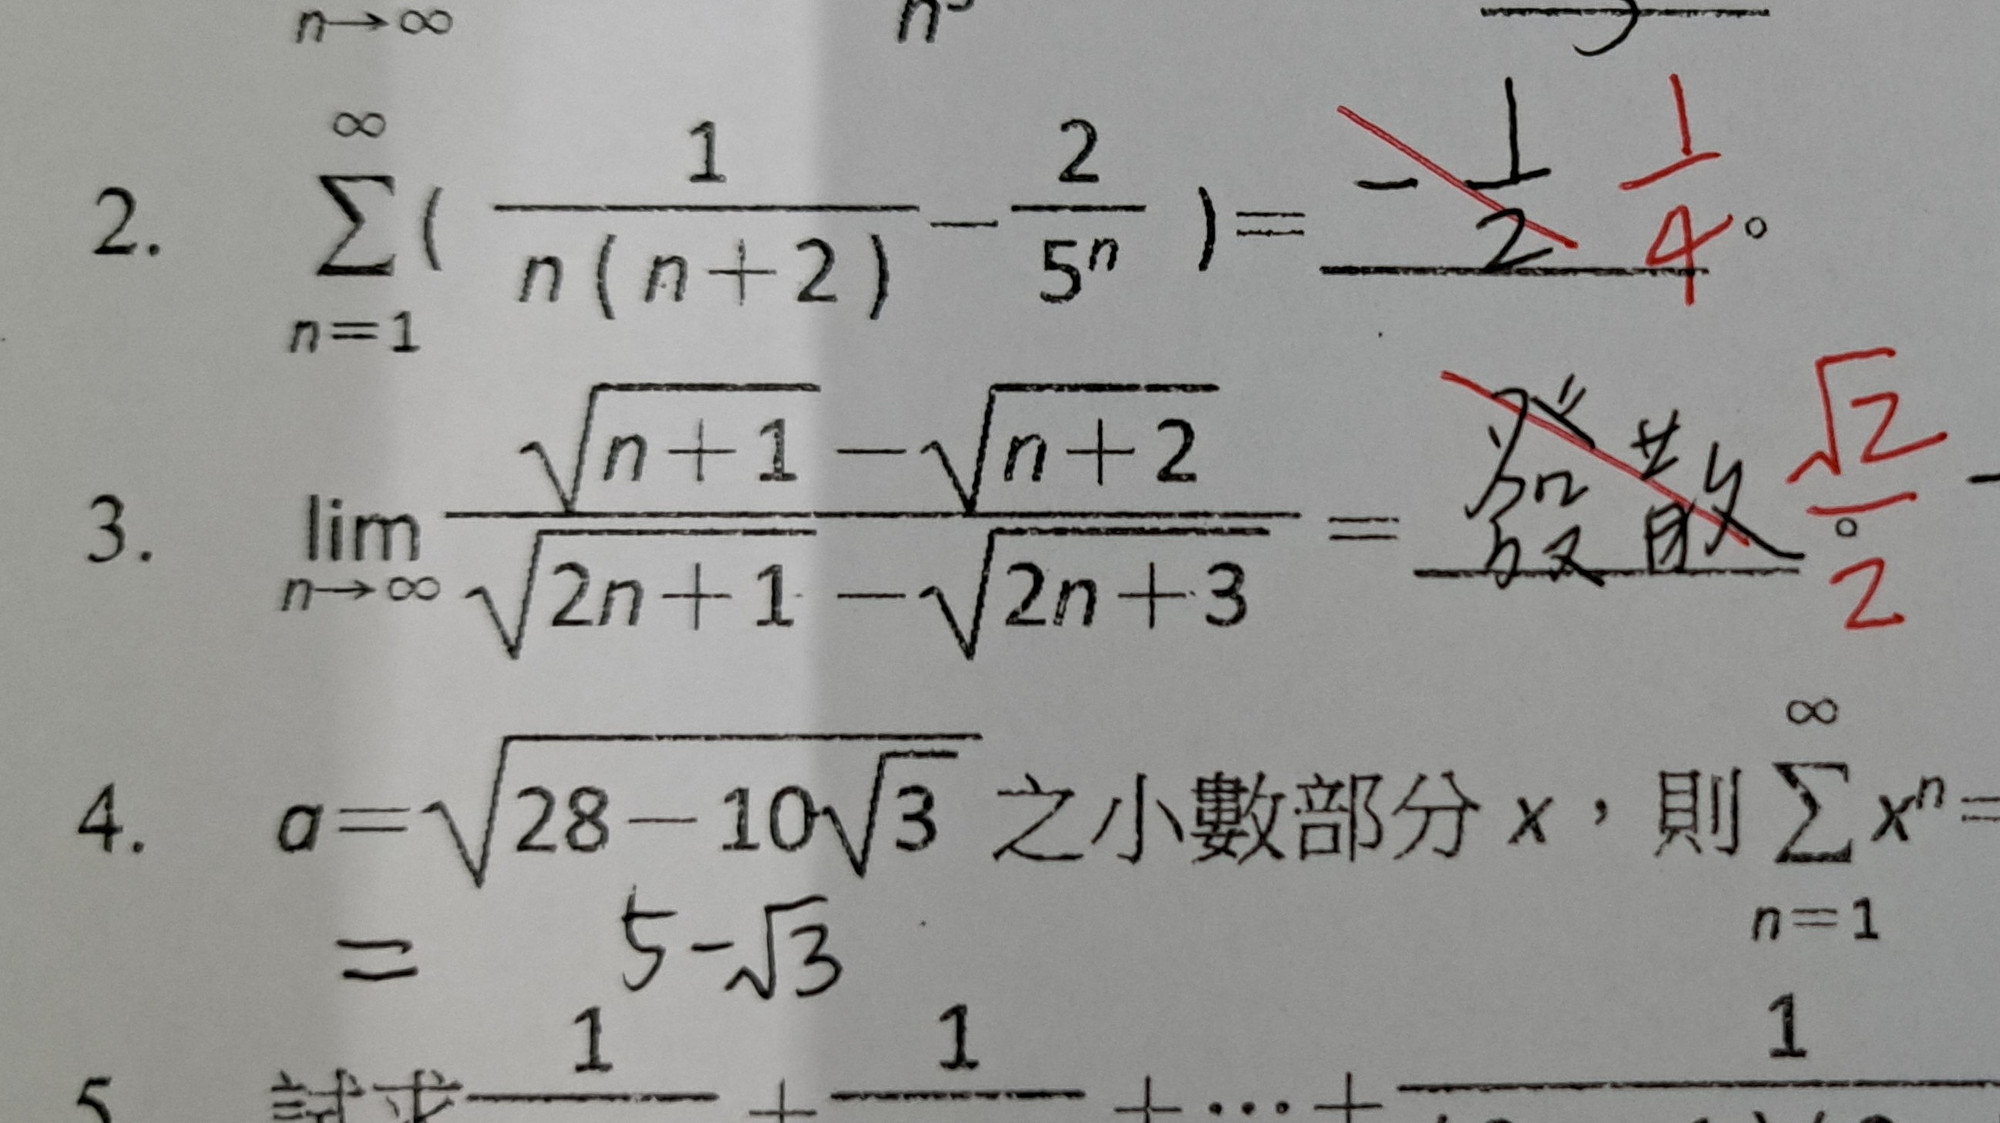 n→∞ n³
2. ∞ Σ n=1 ( 1/n(n+2) − 2/5ⁿ ) = -1/2 1/4 。
3. lim n→∞ (√(n+1) − √(n+2))/(√(2n+1) − √(2n+3)) = 發散 √2/2 。
4. a=√(28−10√3) 之小數部分 x,則 ∞ Σ n=1 xⁿ=
= 5-√3
5. 試求 1 + 1 +⋯+ 1